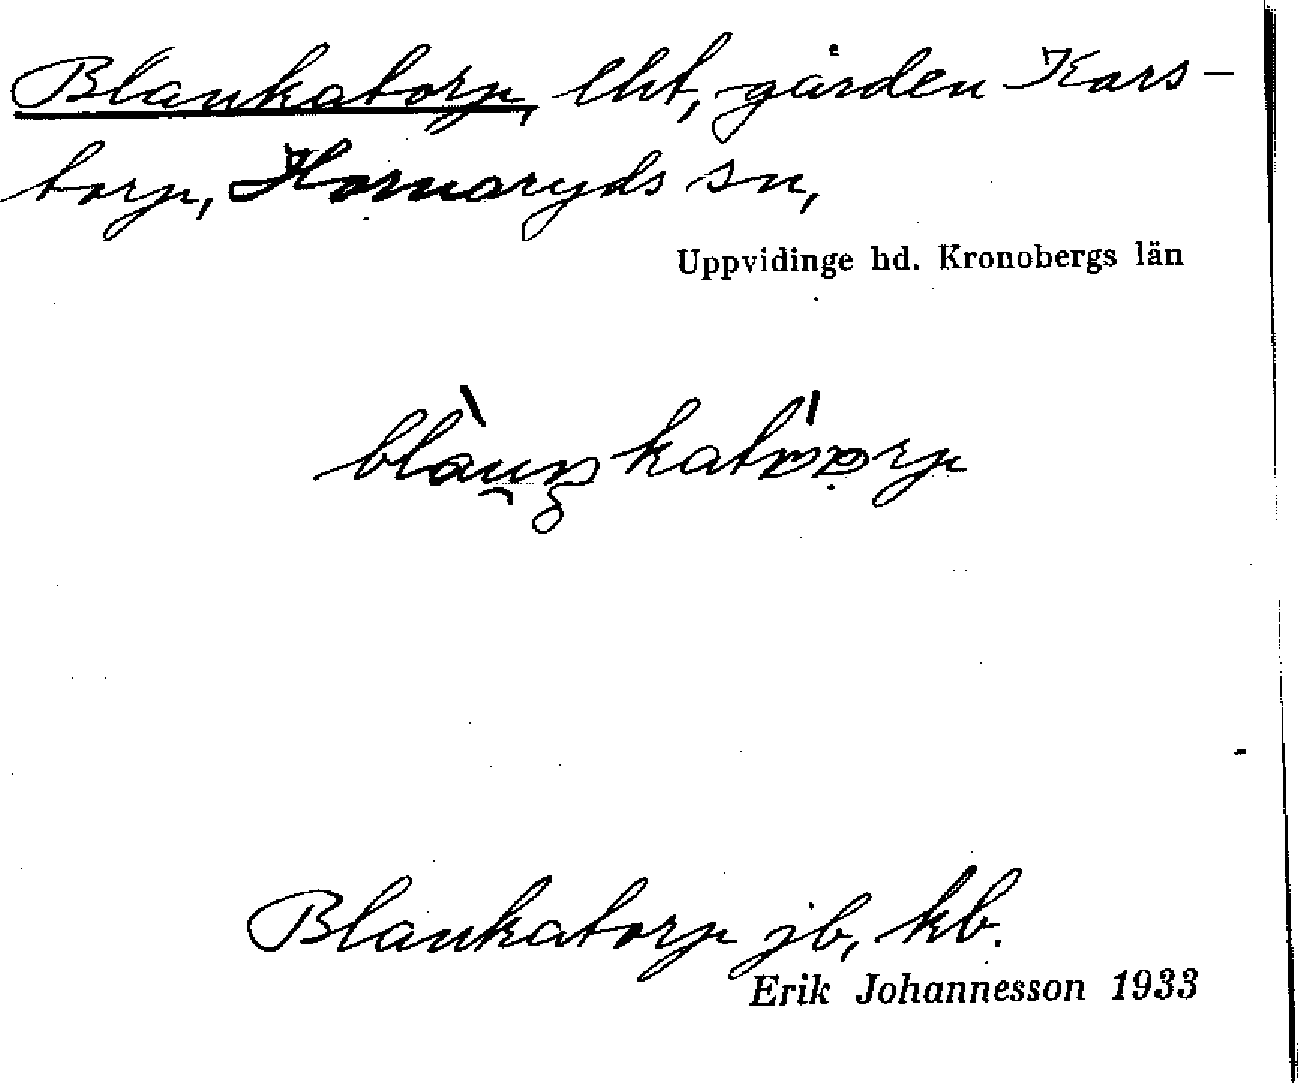 Blankatorp, lht, gården Kors-
torp, Hornaryds sn,
Uppvidinge hd. Kronobergs län
Blankatorp jb, kb.
Erik Johannesson 1933